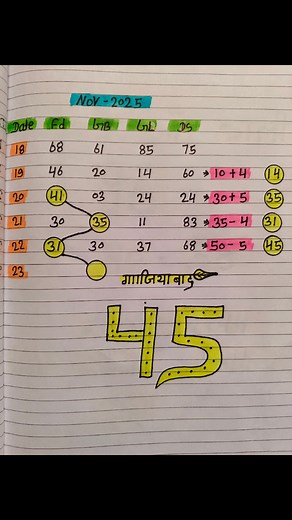 Nov-2025
Date Fd GB GL DS
18 68 61 85 75
19 46 20 14 60 → 10+4 14
20 41 03 24 24 → 30+5 35
21 30 35 11 83 → 35-4 31
22 31 30 37 68 → 50-5 45
23
गाजियाबाद
45